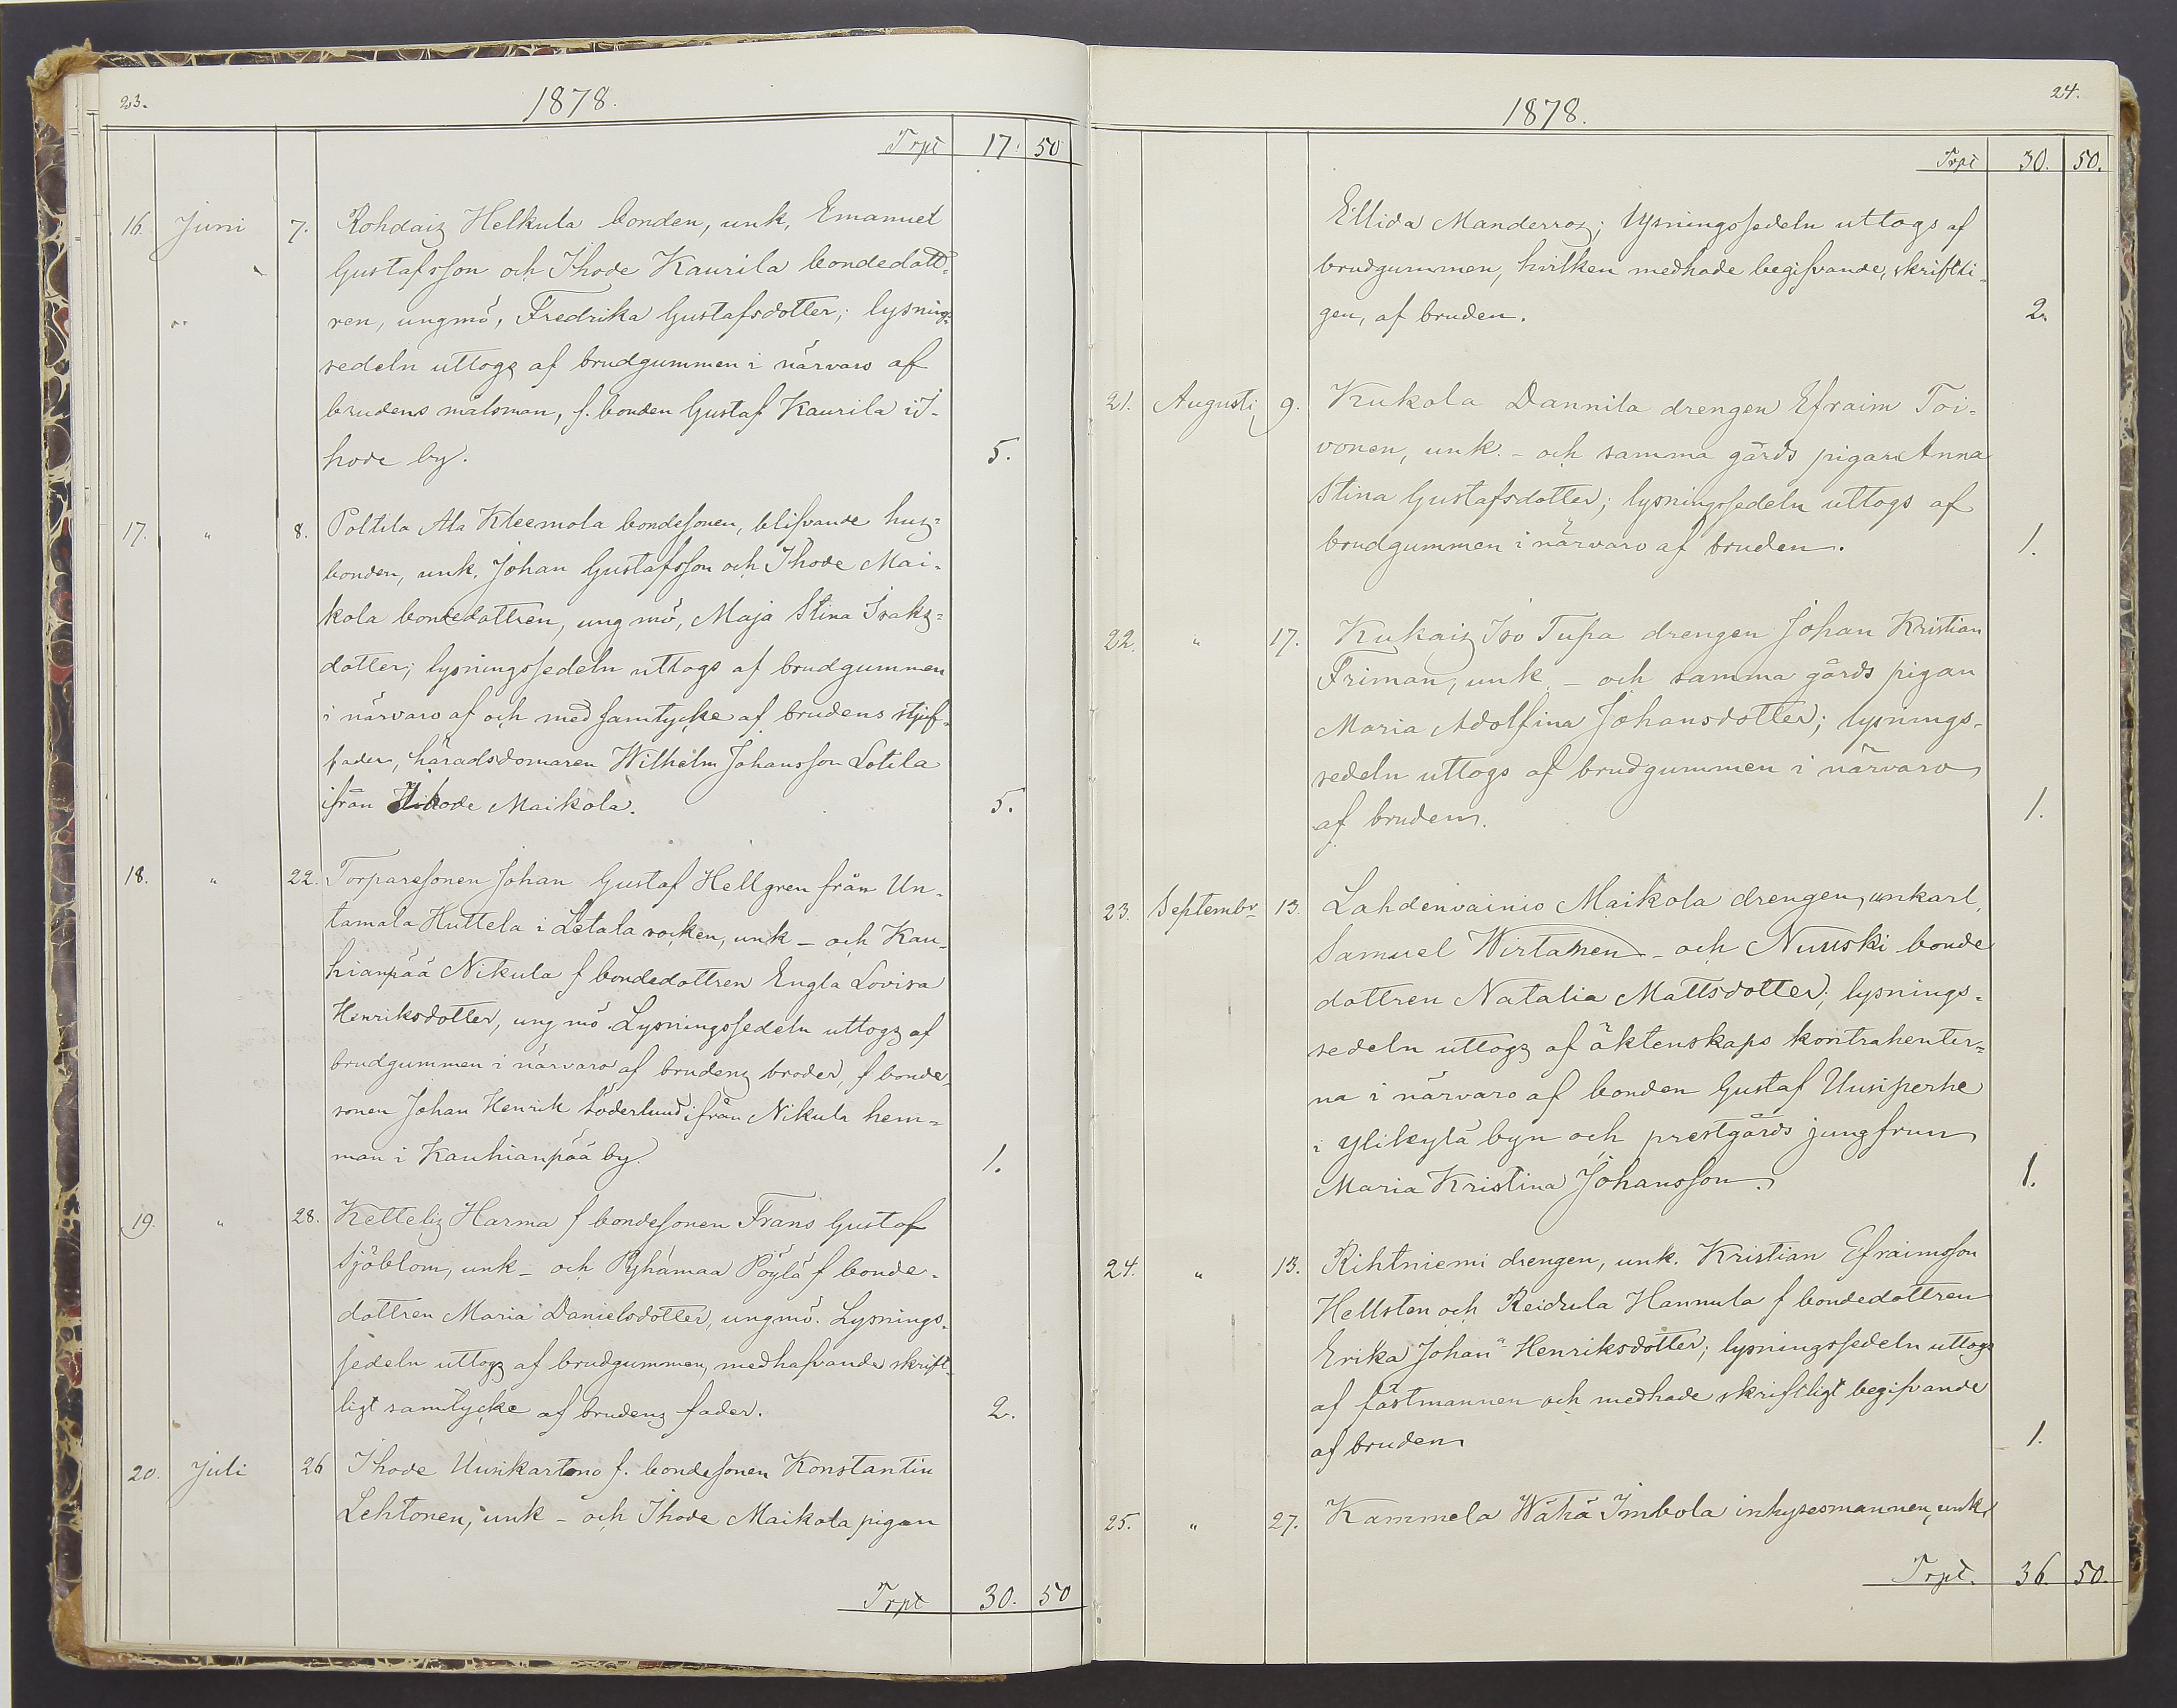 23.
1878.
Trpt 17. 50
16. Juni 7. Rohdaiz Helkula bonden, unk, Emanuel
Gustafsson och Ihode Kaurila bondedott-
ren, ungmö, Fredrika Gustafsdotter; lysnings-
sedeln uttogs af brudgummen i närvaro af
brudens målsman, f. bonden Gustaf Kaurila i I-
hode by. 5.
17. " 8. Poltila Ala Kleemola bondesonen, blifvande hus-
bonden, unk. Johan Gustafsson och Ihode Mai-
kola bondedottren, ung mö, Maja Stina Isaks-
dotter; lysningssedeln uttogs af brudgummen
i närvaro af och med samtycke af brudens stjuf-
fader, häradsdomaren Wilhelm Johansson Lotila
ifrån Ihode Maikola. 5.
18. " 22. Torparesonen Johan Gustaf Hellgren från Un-
tamala Huttela i Letala socken, unk – och Kau-
hianpää Nikula f bondedottren Engla Lovisa
Henriksdotter, ung mö. Lysningssedeln uttogs af
brudgummen i närvaro af brudens broder, f bonde-
sonen Johan Henrik Söderlund ifrån Nikula hem-
man i Kauhianpää by. 1.
19. " 28. Ketteliz Harma f bondesonen Frans Gustaf
Sjöblom, unk – och Pyhämaa Pöylä f bonde-
dottren Maria Danielsdotter, ungmö. Lysnings-
sedeln uttogs af brudgummen, medhafvande skrift-
ligt samtycke af brudens fader. 2.
20. Juli 26 Ihode Uusikartano f. bondesonen Konstantin
Lehtonen, unk – och Ihode Maikola pigan
Trpt 30. 50
24.
1878.
Trpt 30. 50.
Ellida Manderroos; lysningssedeln uttogs af
brudgummen, hvilken medhade begifvande, skriftli-
gen, af bruden. 2.
21. Augusti 9. Kukola Dannila drengen Efraim Toi-
vonen, unk. – och samma gårds pigan Anna
Stina Gustafsdotter; lysningssedeln uttogs af
brudgummen i närvaro af bruden. 1.
22. " 17. Kukaiz Iso Tupa drengen Johan Kristian
Friman, unk – och samma gårds pigan
Maria Adolfina Johansdotter; lysnings-
sedeln uttogs af brudgummen i närvaro
af bruden. 1.
23. Septembr 13. Lahdenvainio Maikola drengen, unkarl,
Samuel Wirtanen – och Nuuski bonde
dottren Natalia Mattsdotter; lysnings-
sedeln uttogs af äktenskaps kontrahenter-
na i närvaro af bonden Gustaf Uusiperhe
i Ylikylä byn och prestgårds jungfrun
Maria Kristina Johansson. 1.
24. " 13. Rihtniemi drengen, unk. Kristian Efraimsson
Hellsten och Reidula Hannula f bondedottren
Erika Johan Henriksdotter; lysningssedeln uttogs
af fästmannen och medhade skriftligt begifvande
af bruden 1.
25. " 27. Kammela Wähä Imbola inhysesmannen, unk
Trpt. 36. 50.